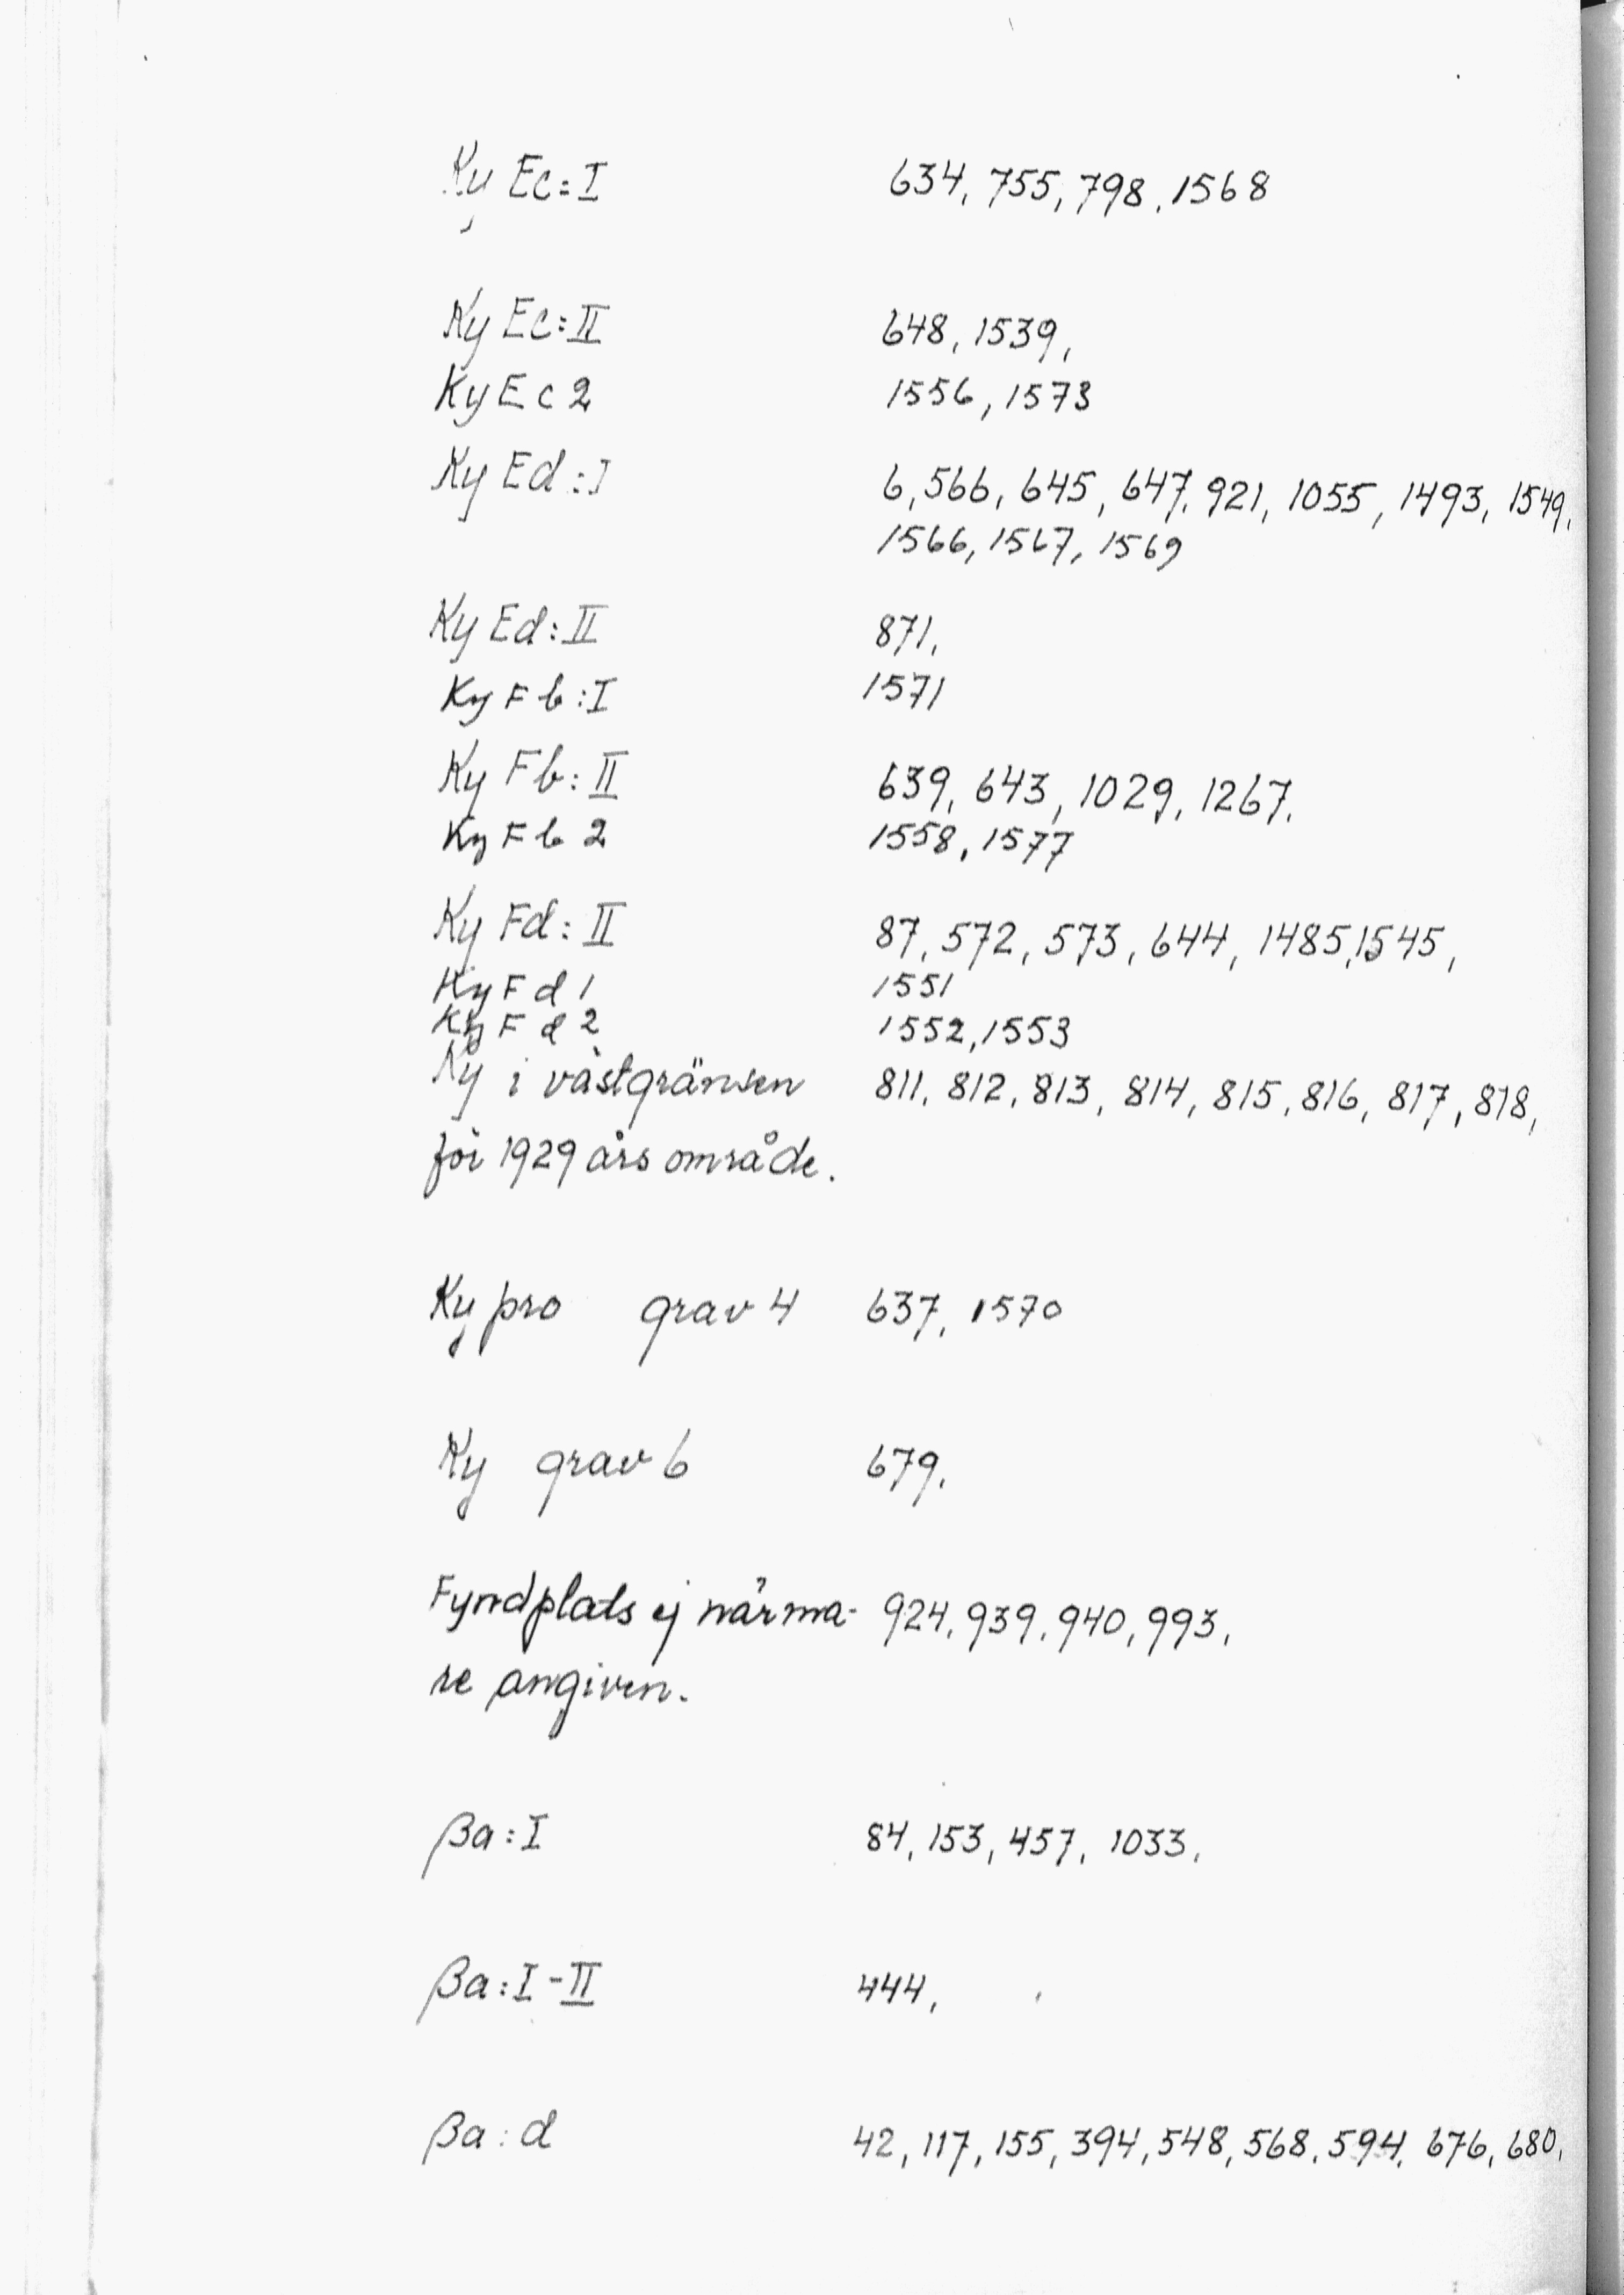 Ky Ec=I 634, 755, 798, 1568
Ky Ec:II 648, 1539,
Ky Ec 2 1556, 1573
Ky Ed:I 6, 566, 645, 647, 921, 1055, 1493, 1549,
1566, 1567, 1569
Ky Ed:II 871,
Ky Fb:I 1571
Ky Fb:II 639, 643, 1029, 1267,
Ky Fb 2 1558, 1577
Ky Fd:II 87, 572, 573, 644, 1485, 1545,
Ky Fd 1 1551
Ky Fd 2 1552, 1553
Ky i västgränsen 811, 812, 813, 814, 815, 816, 817, 818,
för 1929 års område.
Ky pro grav 4 637, 1570
Ky grav 6 679.
Fyndplats ej närma- 924, 939, 940, 993,
re angiven.
βa:I 84, 153, 457, 1033,
βa:I-II 444,
βa:d 42, 117, 155, 394, 548, 568, 594, 676, 680,